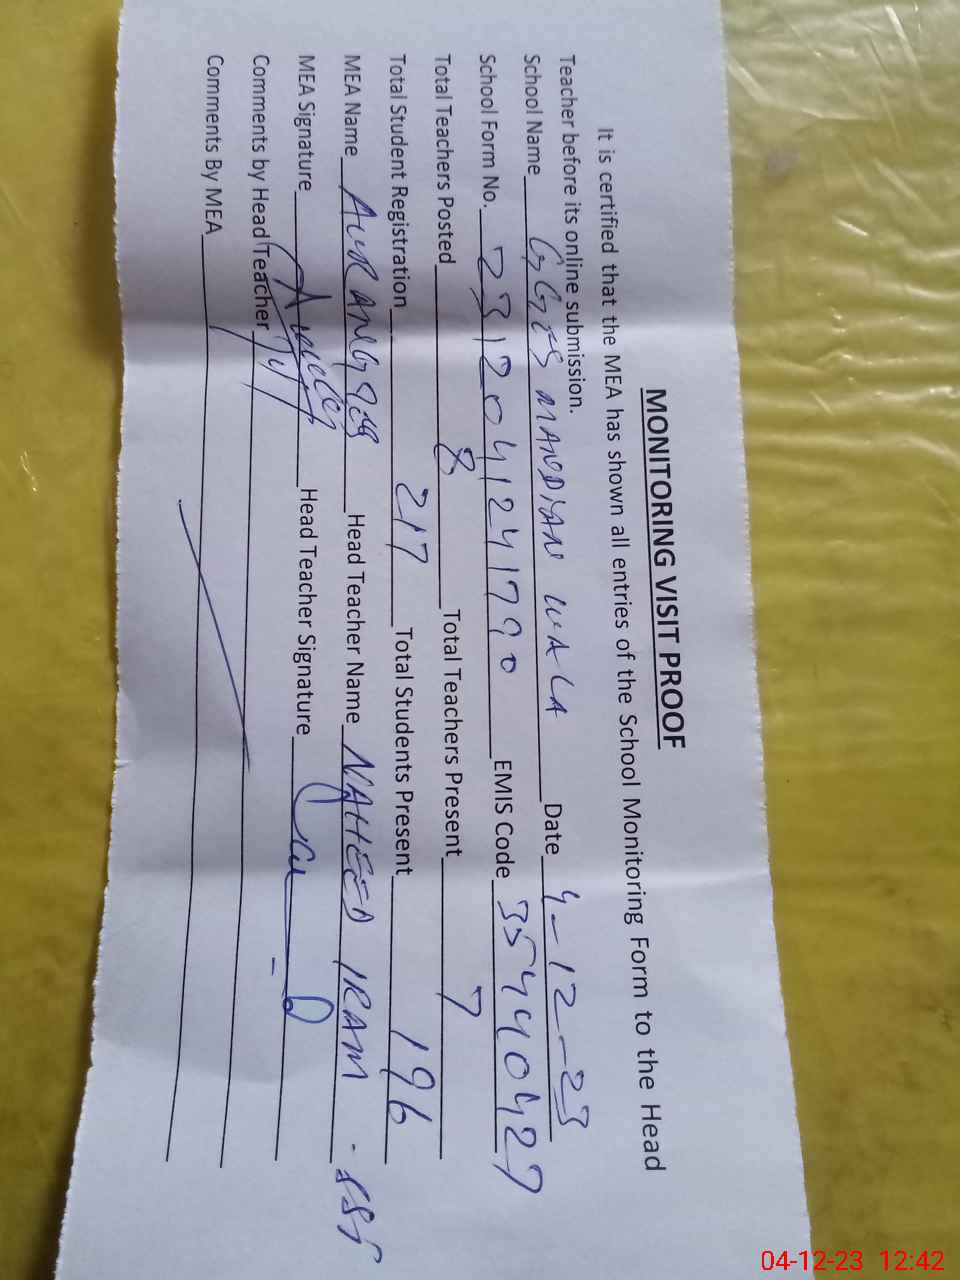 MONITORING VISIT PROOF
It is certified that the MEA has shown all entries of the School Monitoring Form to the Head
Teacher before its online submission.
School Name GGES MANDIAN WALA Date 4-12-23
School Form No. 2312041241790 EMIS Code 35440427
Total Teachers Posted 8 Total Teachers Present 7
Total Student Registration 217 Total Students Present 196
MEA Name AURANGZEB Head Teacher Name NAHEED IRAM - SST
MEA Signature Head Teacher Signature
Comments by Head Teacher
Comments By MEA
04-12-23 12:42